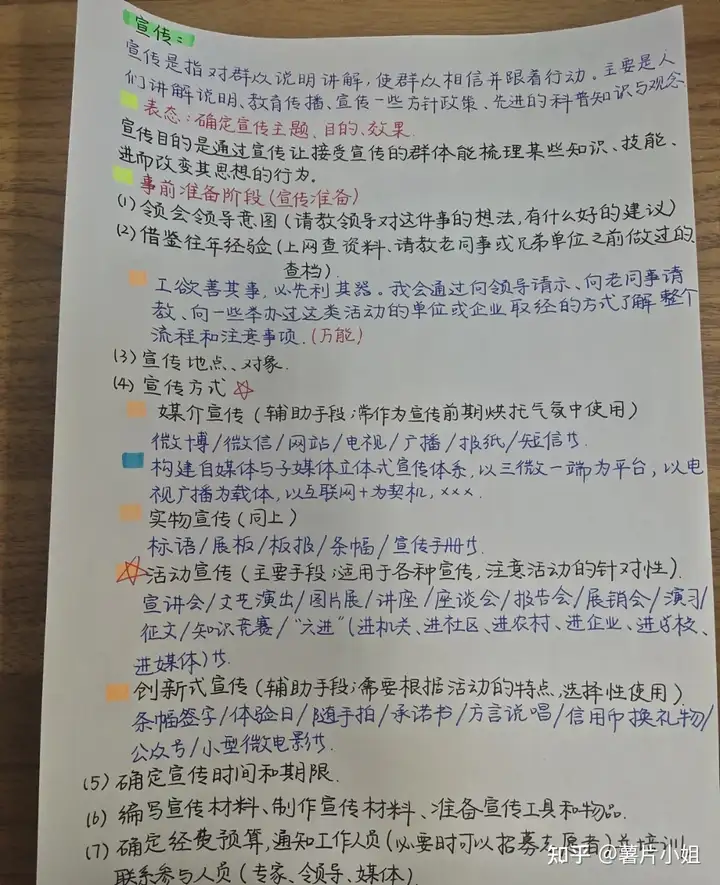 宣传:
宣传是指对群众说明讲解,使群众相信并跟着行动。主要是人
们讲解说明、教育传播、宣传一些方针政策、先进的科普知识与观念
表态:确定宣传主题、目的、效果.
宣传目的是通过宣传让接受宣传的群体能梳理某些知识、技能、
进而改变其思想的行为.
事前准备阶段(宣传准备)
(1) 领会领导意图(请教领导对这件事的想法,有什么好的建议)
(2) 借鉴往年经验(上网查资料、请教老同事或兄弟单位之前做过的.
查档)
工欲善其事,必先利其器。我会通过向领导请示、向老同事请
教、向一些举办过这类活动的单位或企业取经的方式了解整个
流程和注意事项.(万能)
(3) 宣传地点、对象.
(4) 宣传方式☆
媒介宣传(辅助手段;常作为宣传前期烘托气氛中使用)
微博/微信/网站/电视/广播/报纸/短信等.
构建自媒体与子媒体立体式宣传体系,以三微一端为平台,以电
视广播为载体,以互联网+为契机,×××.
实物宣传(同上)
标语/展板/板报/条幅/宣传手册等.
☆活动宣传(主要手段;适用于各种宣传,注意活动的针对性).
宣讲会/文艺演出/图片展/讲座/座谈会/报告会/展销会/演习/
征文/知识竞赛/"六进"(进机关、进社区、进农村、进企业、进学校、
进媒体)等.
创新式宣传(辅助手段;需要根据活动的特点,选择性使用)
条幅签字/体验日/随手拍/承诺书/方言说唱/信用币换礼物/
公众号/小型微电影等.
(5) 确定宣传时间和期限.
(6) 编写宣传材料、制作宣传材料、准备宣传工具和物品.
(7) 确定经费预算,通知工作人员(必要时可以招募志愿者)并培训
联系参与人员(专家、领导、媒体)
知乎 @薯片小姐